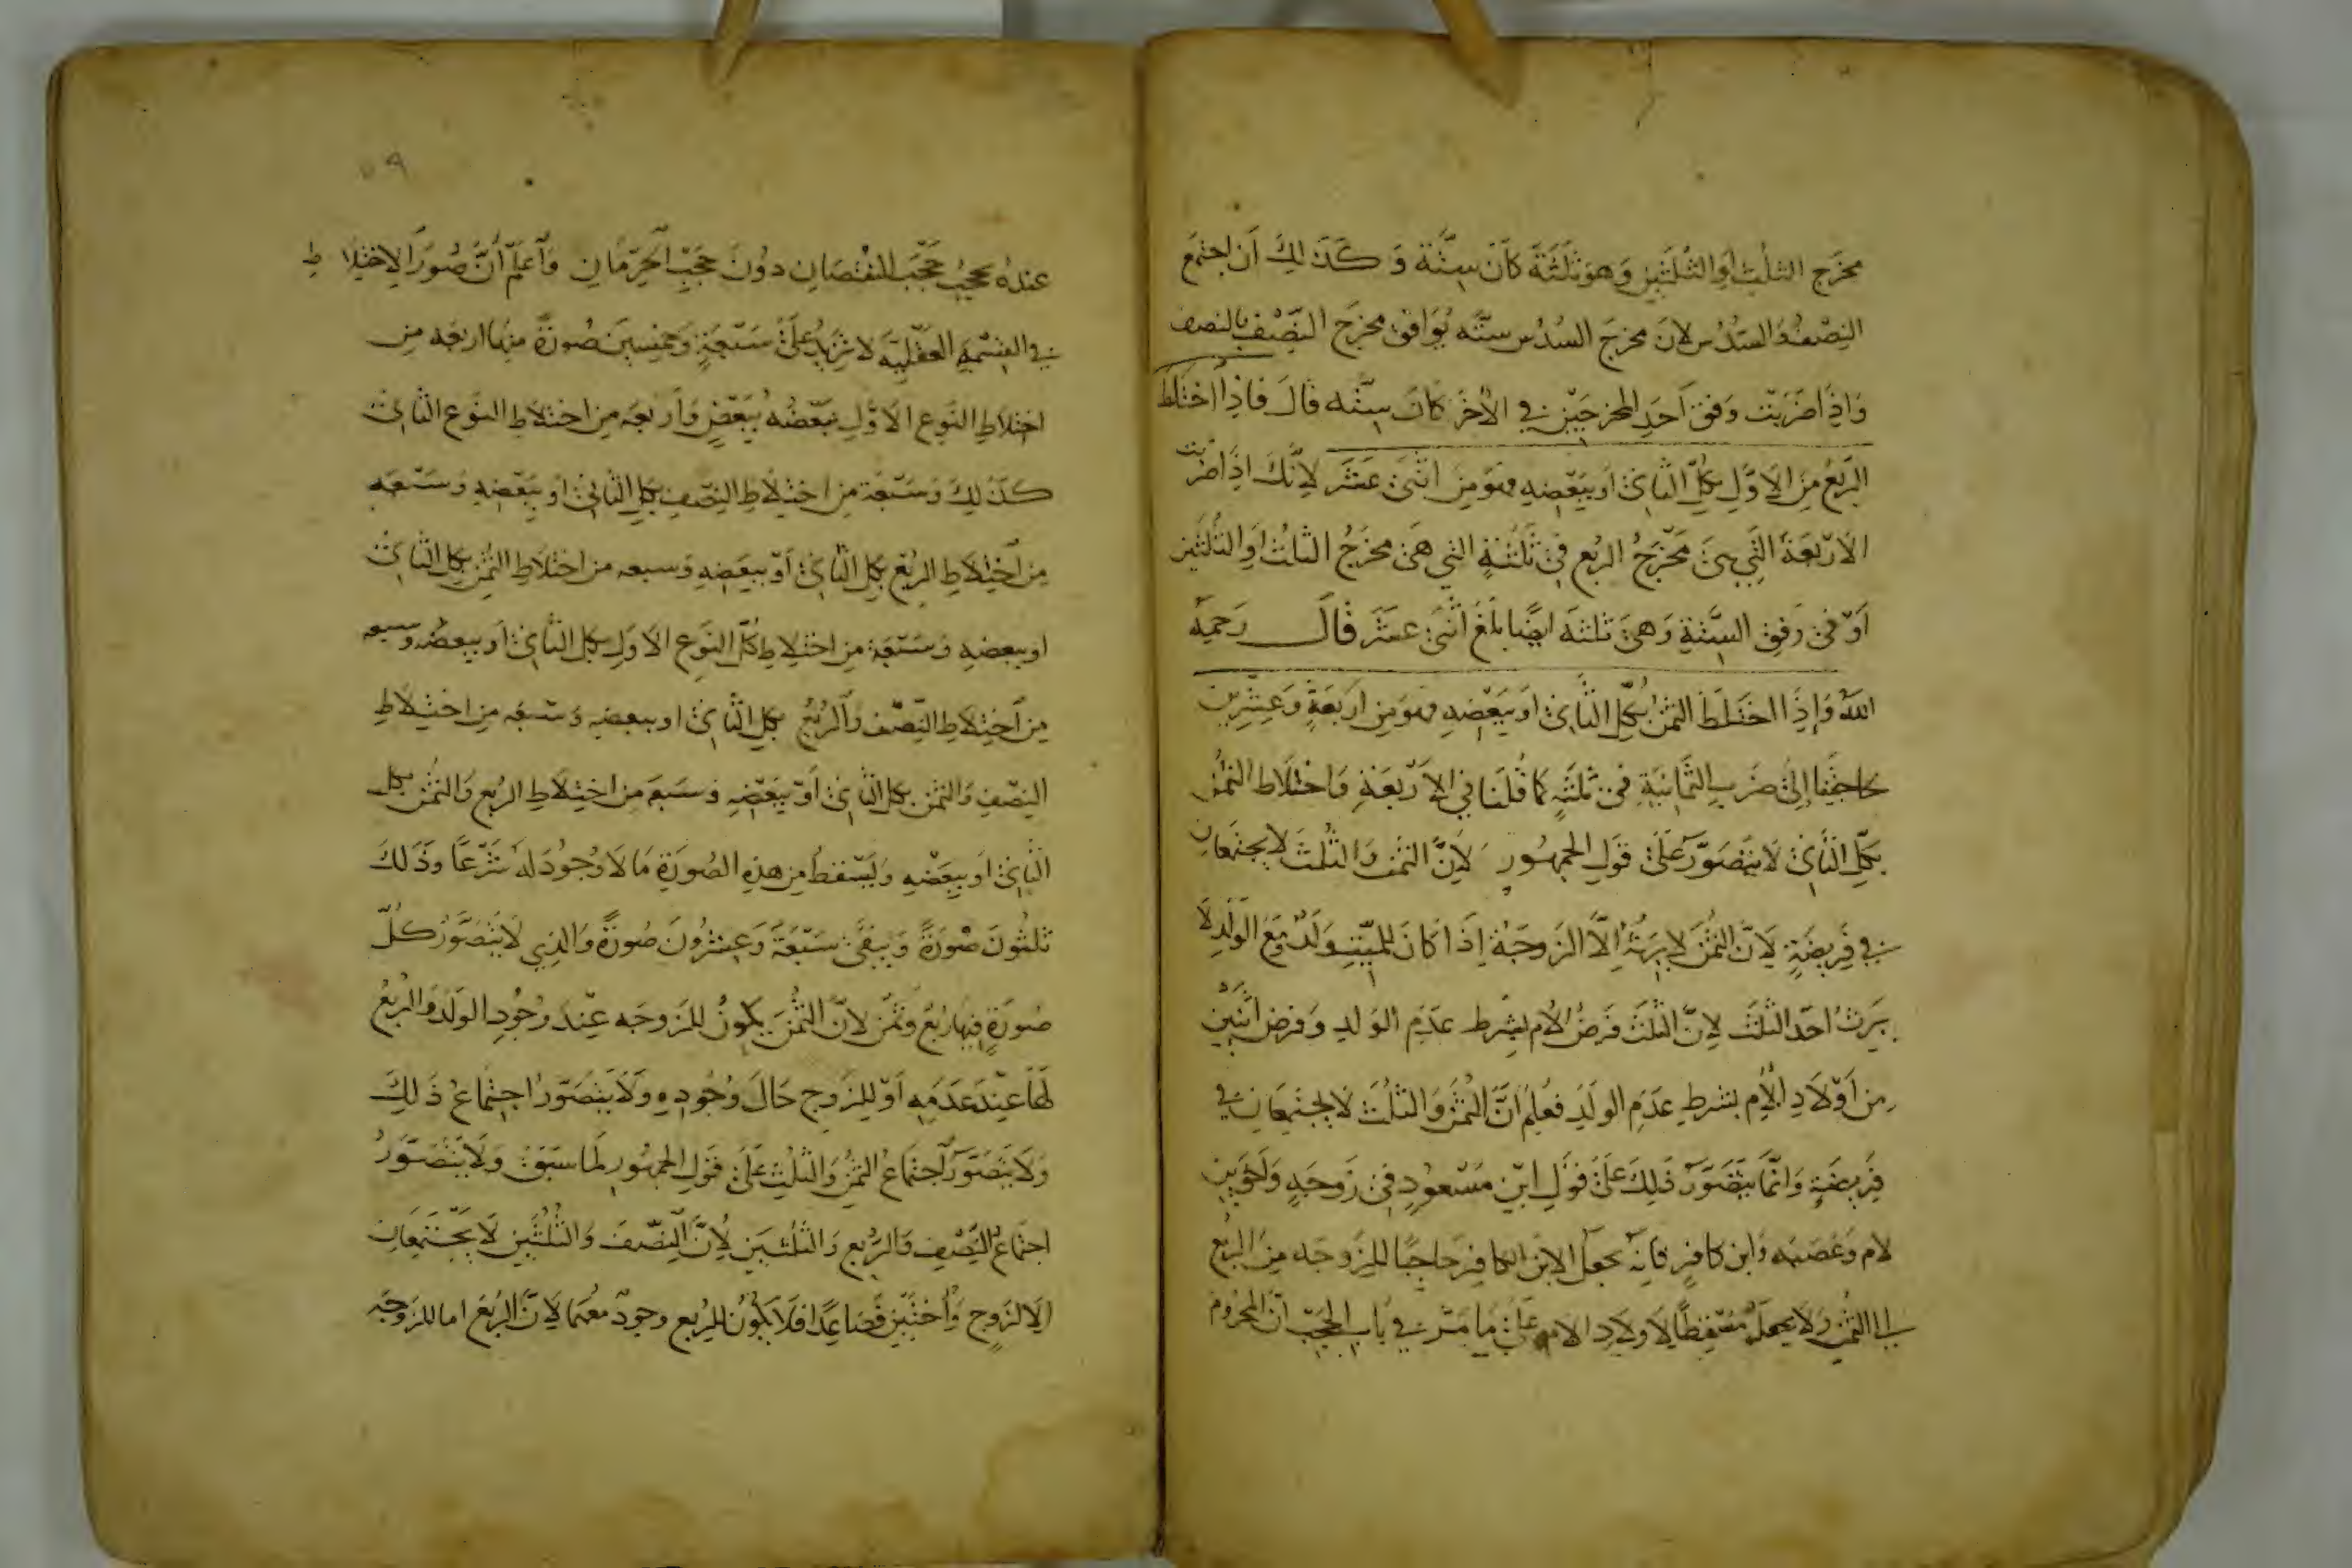 مخرج الثلث او الثلثين وهو ثلثة كان ستة و كذلك ان اجتمع
النصف والسدس لان مخرج السدس ستة يوافق مخرج النصف بالنصف
واذا ضربت وفق احد المخرجين في الآخر كان ستة قال فاذا اختلط
الربع من الاول بكل الثاني او ببعضه فهو من اثنى عشر لانك اذا ضربت
الاربعة التي هي مخرج الربع في ثلثة التي هي مخرج الثلث او الثلثين
او في وفق الستة وهي ثلثة ايضا بلغ اثنى عشر قال رحمه
الله واذا اختلط الثمن بكل الثاني او ببعضه فهو من اربعة وعشرين
حاجتنا الى ضرب الثمانية في ثلثة كما قلنا في الاربعة واختلاط الثمن
بكل الثاني لا يتصور على قول الجمهور لان الثمن والثلث لا يجتمعان
في فريضة لان الثمن لا يرثه الا الزوجة اذا كان للميت ولد ومع الولد لا
يرث احد الثلث لان الثلث فرض الام بشرط عدم الولد وفرض اثنين
من اولاد الام بشرط عدم الولد فعلم ان الثمن والثلث لا يجتمعان في
فريضة وانما يتصور ذلك على قول ابن مسعود في زوجة واخوين
لام وعصبة وابن كافر فانه يجعل الابن الكافر حاجبا للزوجة من الربع
الى الثمن ولا يجعله مسقطا لاولاد الام على ما مر في باب الحجب ان المحروم
٥٩
عنده يحجب حجب النقصان دون حجب الحرمان واعلم ان صور الاختلاط
في القسمة العقلية لا تزيد على سبعة وخمسين صورة منها اربعة من
اختلاط النوع الاول بعضه ببعض واربعة من اختلاط النوع الثاني
كذلك وسبعة من اختلاط النصف بكل الثاني او ببعضه وسبعة
من اختلاط الربع بكل الثاني او ببعضه وسبعه من اختلاط الثمن بكل الثاني
او ببعضه وسبعة من اختلاط كل النوع الاول بكل الثاني او ببعضه وسبعه
من اختلاط النصف والربع بكل الثاني او ببعضه وسبعه من اختلاط
النصف والثمن بكل الثاني او ببعضه وسبعه من اختلاط الربع والثمن بكل
الثاني او ببعضه ويسقط من هذه الصورة ما لا وجود له شرعا وذلك
ثلثون صورة ويبقى سبعة وعشرون صورة والذي لا يتصور كل
صورة فيها ربع وثمن لان الثمن يكون للزوجه عند وجود الولد والربع
لها عند عدمه او للزوج حال وجوده ولا يتصور اجتماع ذلك
ولا يتصور اجتماع الثمن والثلث على قول الجمهور لما سبق ولا يتصور
اجتماع النصف والربع والثلثين لان النصف والثلثين لا يجتمعان
الا لزوج واختين فصاعدا فلا يكون للربع وجود معهما لان الربع اما للزوجه